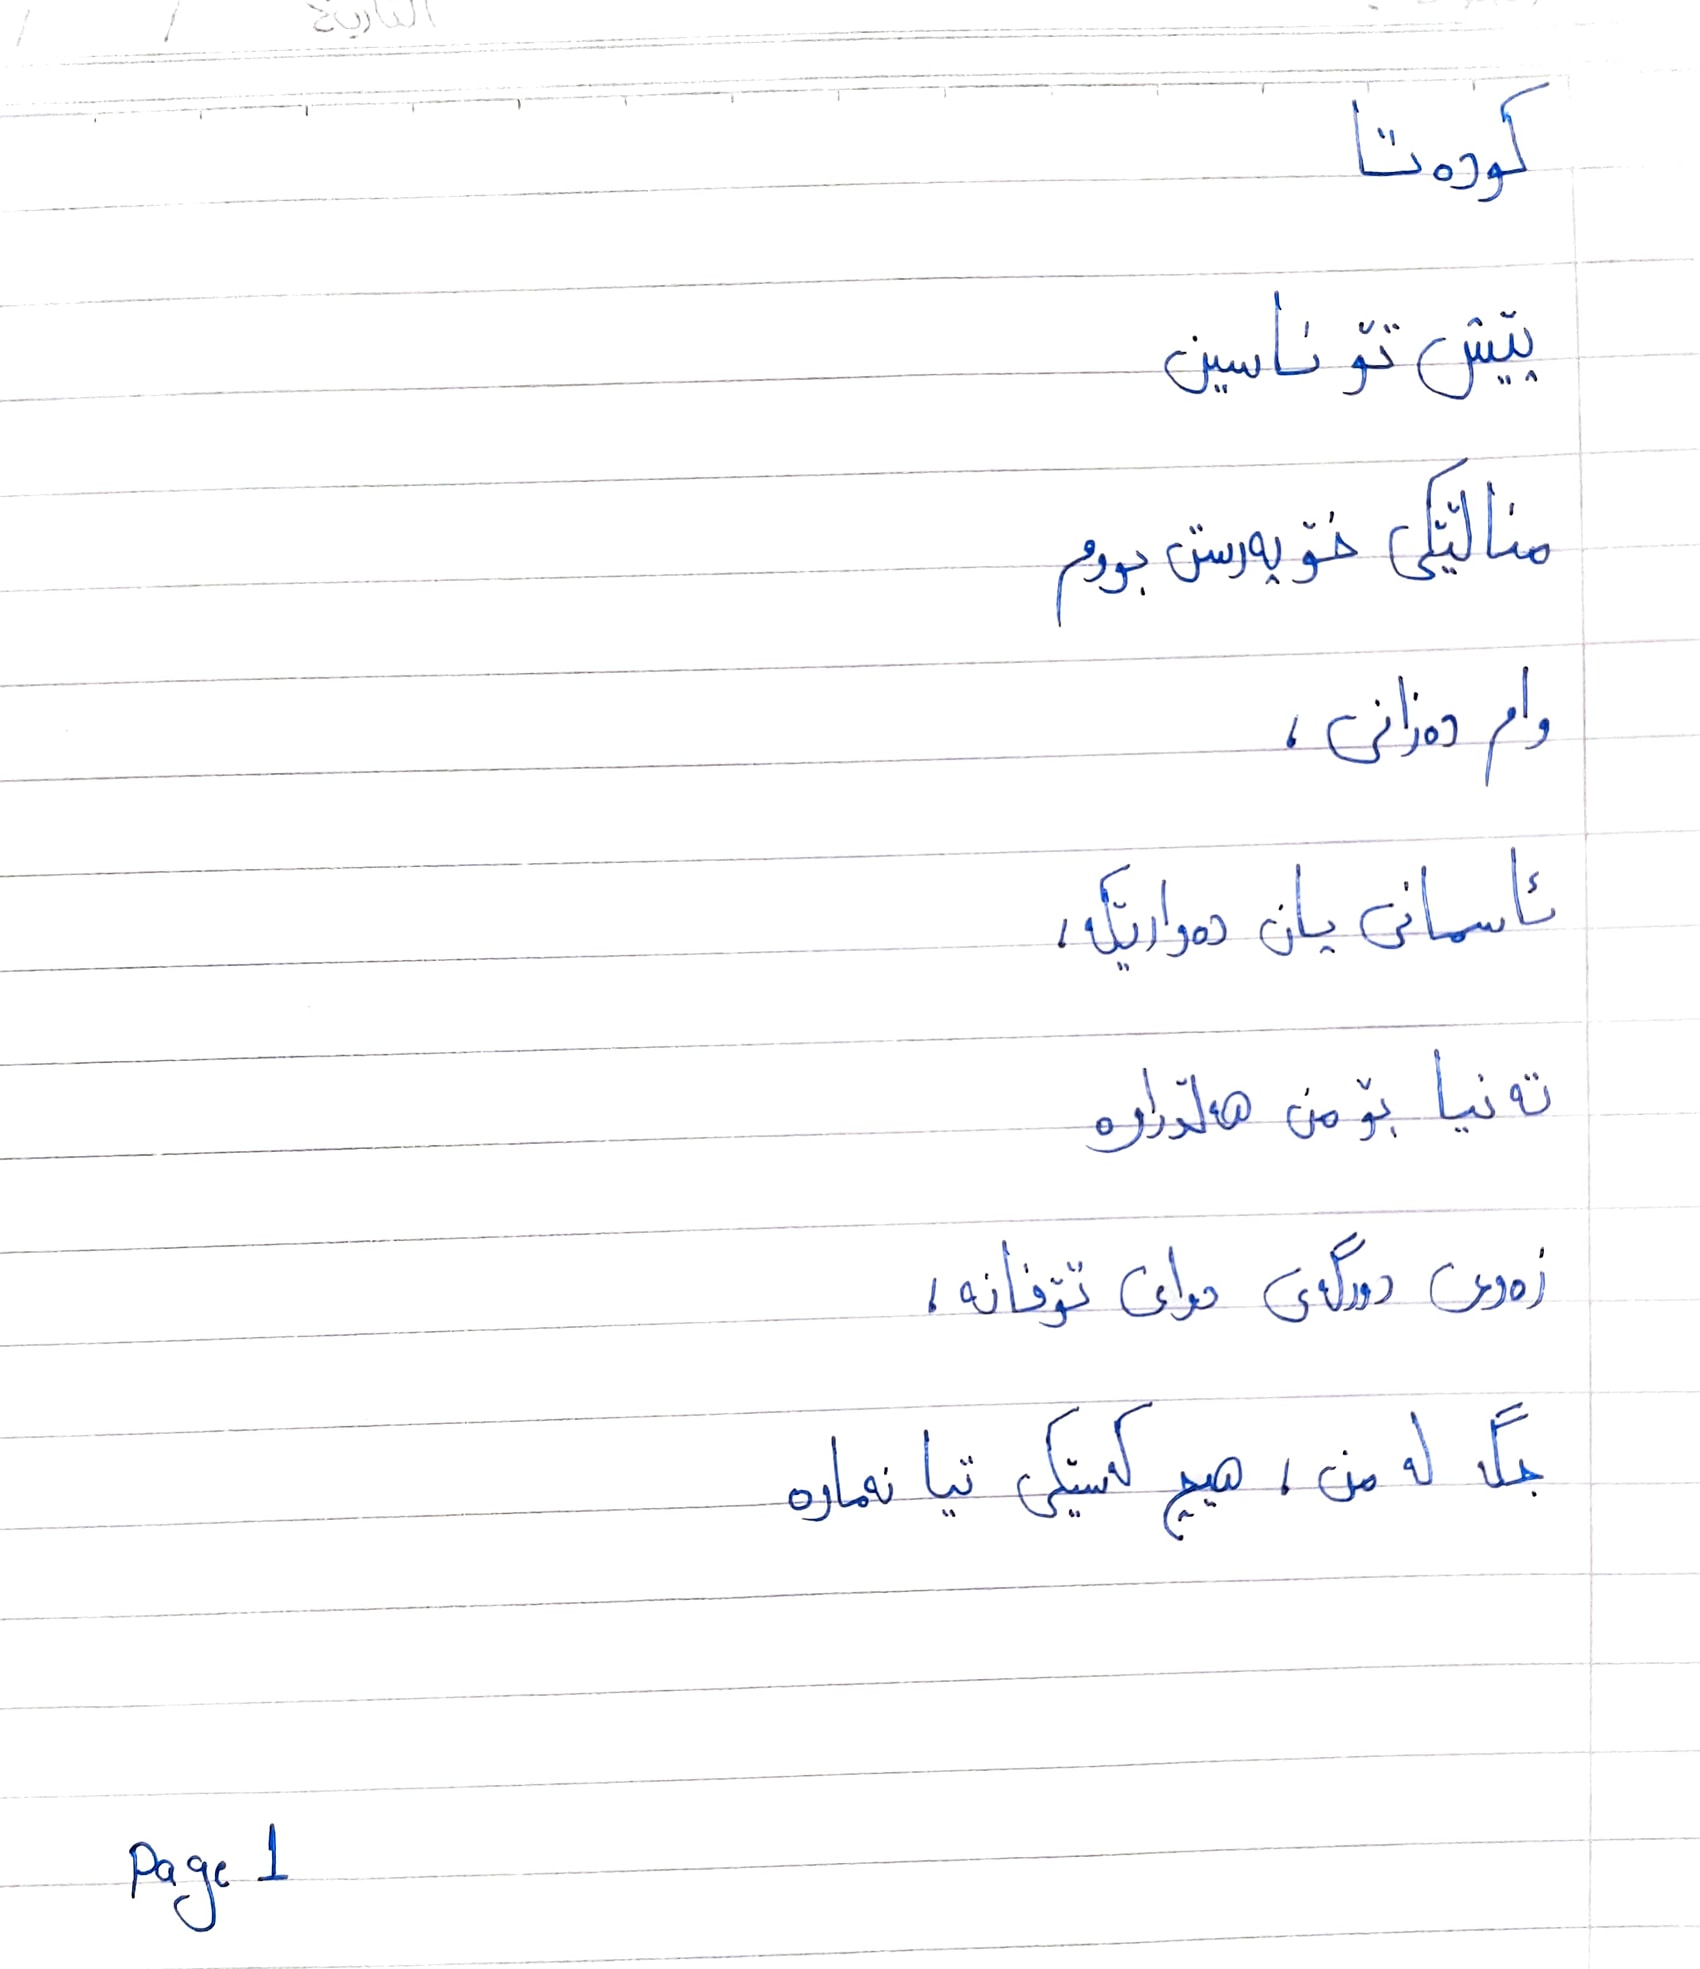 التاريخ / /
كودەتا
پێش تۆ ناسین
مناڵێکی خۆپەرست بووم
وام دەزانی،
ئاسمانی پان دەوارێکە،
تەنیا بۆ من هەڵدراوە
زەوی دورگەی دوای تۆفانە،
جگە لە من، هیچ کەسێکی تیا نەماوە
Page 1